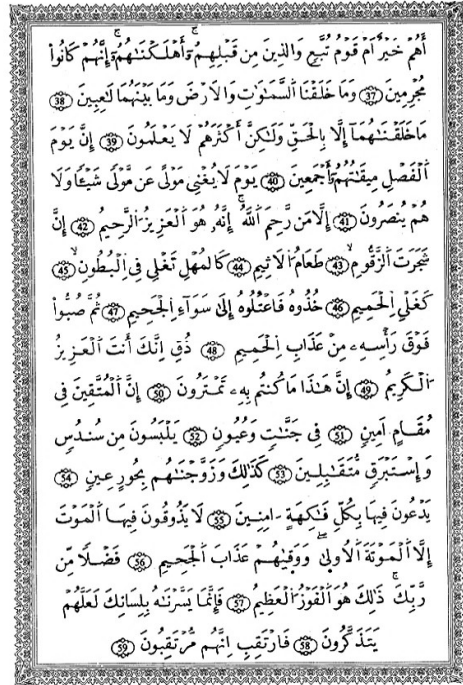 أَهُمْ خَيْرٌ أَمْ قَوْمُ تُبَّعٍ وَالذِينَ مِن قَبْلِهِمُۥٓ أَهْلَكْنَٰهُمُۥٓ إِنَّهُمْ كَانُوا۟
مُجْرِمِينَ 37 وَمَا خَلَقْنَا اَلسَّمَٰوَٰتِ وَالَارْضَ وَمَا بَيْنَهُمَا لَٰعِبِينَ 38
مَا خَلَقْنَٰهُمَآ إِلَّا بِالْحَقِّ وَلَٰكِنَّ أَكْثَرَهُمْ لَا يَعْلَمُونَ 39 إِنَّ يَوْمَ
اَلْفَصْلِ مِيقَٰتُهُمُۥٓ أَجْمَعِينَ 40 يَوْمَ لَا يُغْنِي مَوْلًى عَن مَّوْلًى شَيْـًٔا وَلَا
هُمْ يُنصَرُونَ 41 إِلَّا مَن رَّحِمَ اَللَّهُ إِنَّهُۥ هُوَ اَلْعَزِيزُ الرَّحِيمُ 42 إِنَّ
شَجَرَتَ اَلزَّقُّومِ 43 طَعَامُ الَاثِيمِ 44 كَالْمُهْلِ تَغْلِي فِي الْبُطُونِ 45
كَغَلْيِ اِلْحَمِيمِ 46 خُذُوهُ فَاعْتُلُوهُ إِلَىٰ سَوَآءِ اِلْجَحِيمِ 47 ثُمَّ صُبُّوا۟
فَوْقَ رَأْسِهِۦ مِنْ عَذَابِ اِلْحَمِيمِ 48 ذُقِ اِنَّكَ أَنتَ اَلْعَزِيزُ
اَلْكَرِيمُ 49 إِنَّ هَٰذَا مَا كُنتُم بِهِۦ تَمْتَرُونَ 50 إِنَّ اَلْمُتَّقِينَ فِي
مُقَامٍ اَمِينٍ 51 فِي جَنَّٰتٍ وَعُيُونٍ 52 يَلْبَسُونَ مِن سُندُسٍ
وَإِسْتَبْرَقٍ مُّتَقَٰبِلِينَ 53 كَذَٰلِكَ وَزَوَّجْنَٰهُم بِحُورٍ عِينٍ 54
يَدْعُونَ فِيهَا بِكُلِّ فَٰكِهَةٍ ءَامِنِينَ 55 لَا يَذُوقُونَ فِيهَا اَلْمَوْتَ
إِلَّا اَلْمَوْتَةَ اَلُاولَىٰ وَوَقَىٰهُمْ عَذَابَ اَلْجَحِيمِ 56 فَضْلًا مِّن
رَّبِّكَ ذَٰلِكَ هُوَ اَلْفَوْزُ اَلْعَظِيمُ 57 فَإِنَّمَا يَسَّرْنَٰهُ بِلِسَانِكَ لَعَلَّهُمْ
يَتَذَكَّرُونَ 58 فَارْتَقِبِ اِنَّهُم مُّرْتَقِبُونَ 59